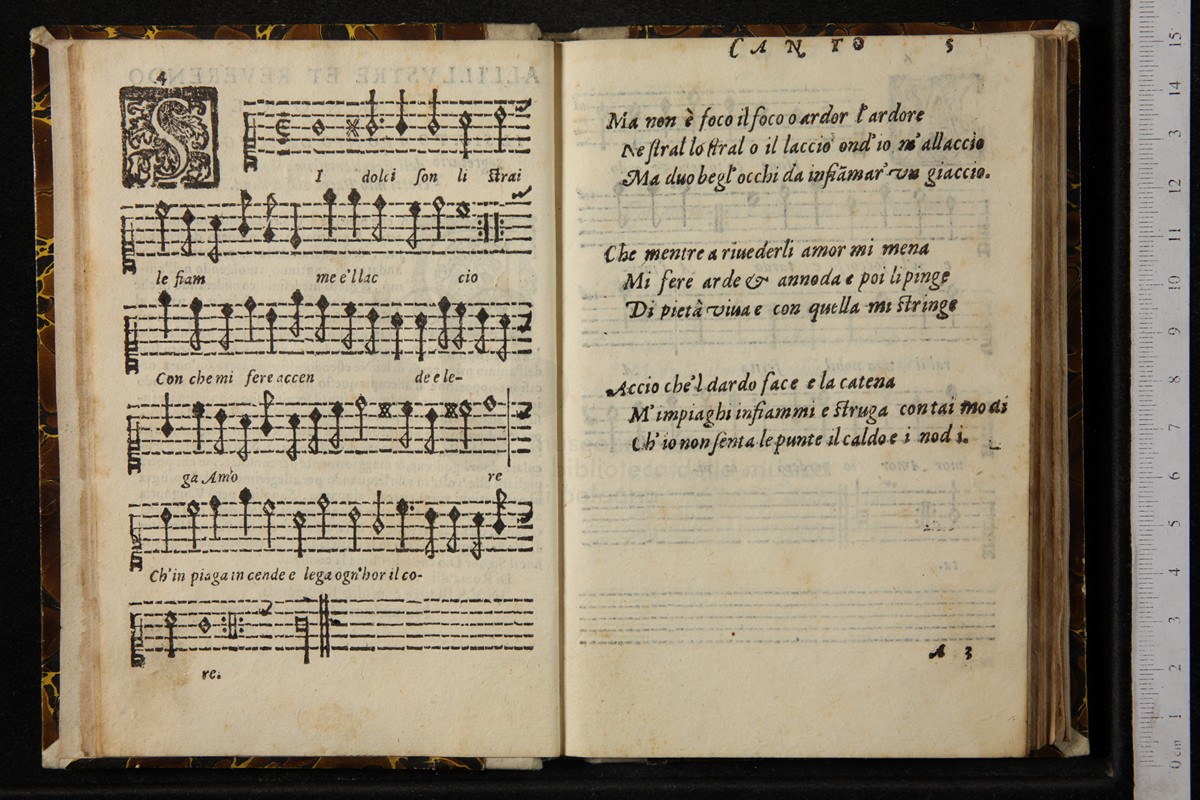 4
SI dolci son li strai
le fiam me e'l lac cio
Con che mi fere accen de e le-
ga Amo re
Ch'in piaga in cende e lega ogn'hor il co-
re.
CANTO 5
Ma non è foco il foco o ardor l'ardore
Ne stral lo stral o il laccio ond'io m'allaccio
Ma duo begl'occhi da infiãmar'vn giaccio.
Che mentre a riuederli amor mi mena
Mi fere arde & annoda e poi li pinge
Di pietà viua e con quella mi stringe
Accio che'l dardo face e la catena
M'impiaghi infiammi e struga con tai modi
Ch'io non senta le punte il caldo e i nodi.
A 3